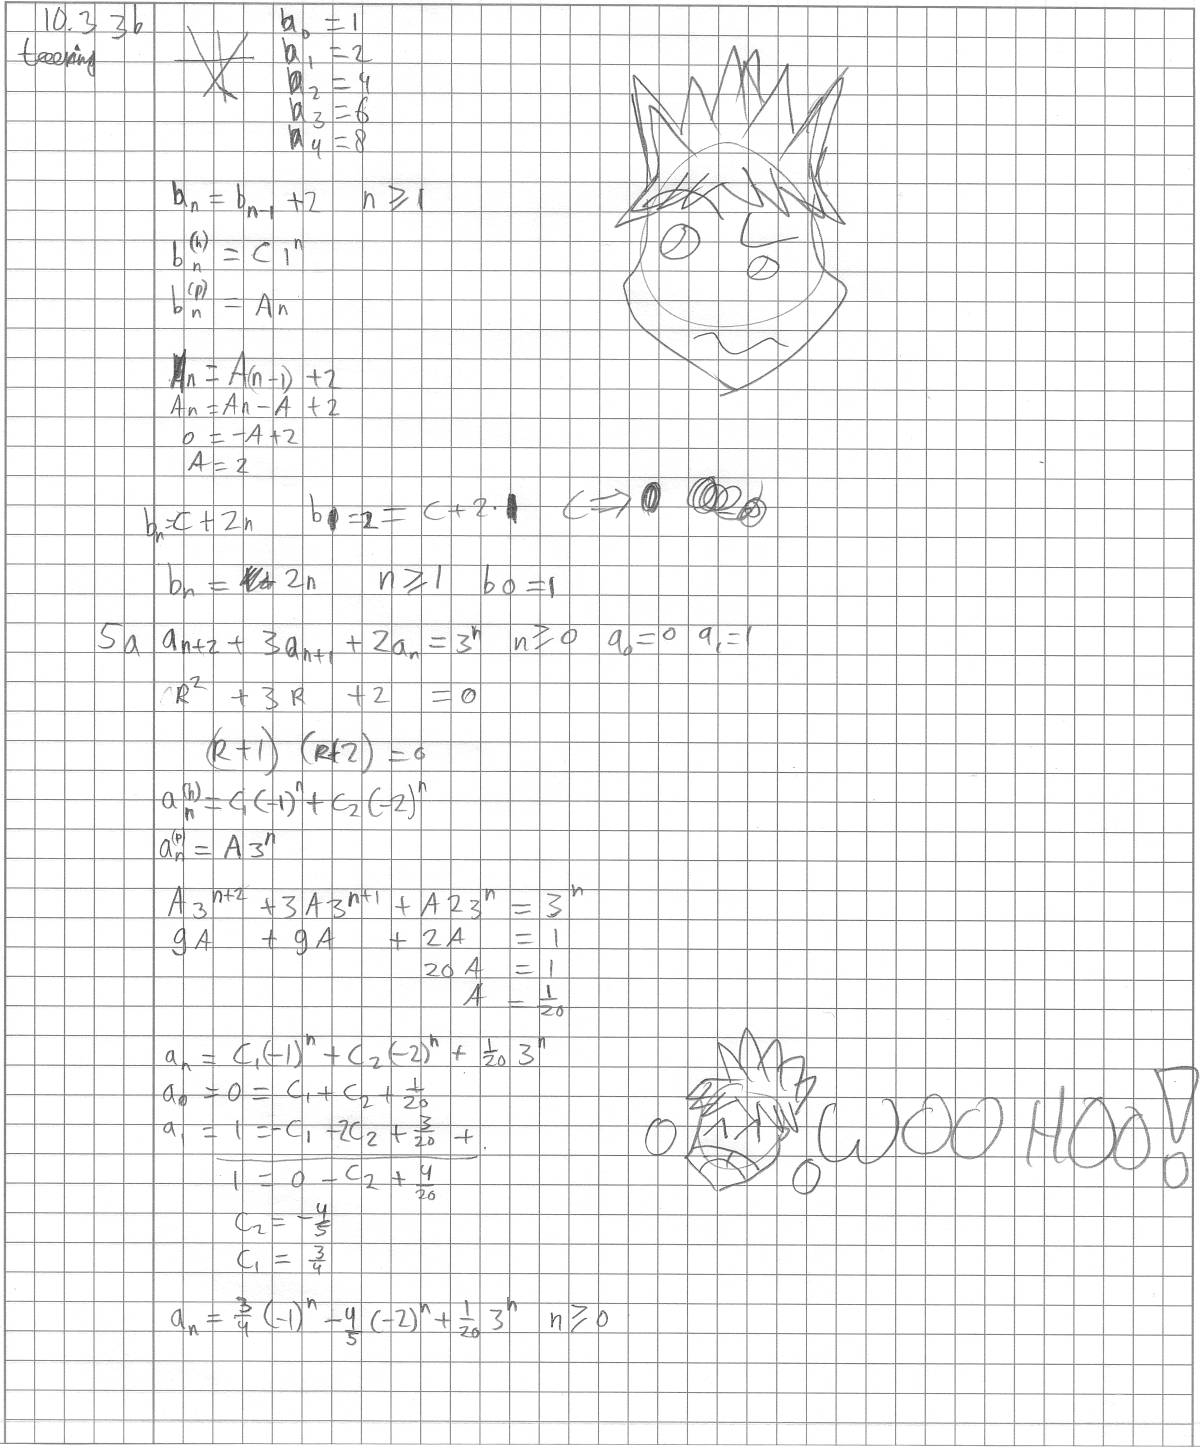 10.3 3b
b₀ = 1
b₁ = 2
b₂ = 4
b₃ = 6
b₄ = 8
bₙ = bₙ₋₁ + 2 n ≥ 1
bₙ⁽ʰ⁾ = C 1ⁿ
bₙ⁽ᵖ⁾ = An
An = A(n-1) + 2
An = An - A + 2
0 = -A + 2
A = 2
bₙ = C + 2n b1 = 2 = C + 2·1 C => 0
bₙ = 2n n ≥ 1 b0 = 1
5a aₙ₊₂ + 3aₙ₊₁ + 2aₙ = 3ⁿ n ≥ 0 a₀ = 0 a₁ = 1
R² + 3R + 2 = 0
(R+1) (R+2) = 0
aₙ⁽ʰ⁾ = C₁(-1)ⁿ + C₂(-2)ⁿ
aₙ⁽ᵖ⁾ = A3ⁿ
A3ⁿ⁺² + 3A3ⁿ⁺¹ + A23ⁿ = 3ⁿ
9A + 9A + 2A = 1
20A = 1
A = 1/20
aₙ = C₁(-1)ⁿ + C₂(-2)ⁿ + 1/20 3ⁿ
a₀ = 0 = C₁ + C₂ + 1/20
a₁ = 1 = -C₁ - 2C₂ + 3/20 +
1 = 0 - C₂ + 4/20
C₂ = -4/5
C₁ = 3/4
WOO HOO!
aₙ = 3/4 (-1)ⁿ - 4/5 (-2)ⁿ + 1/20 3ⁿ n ≥ 0